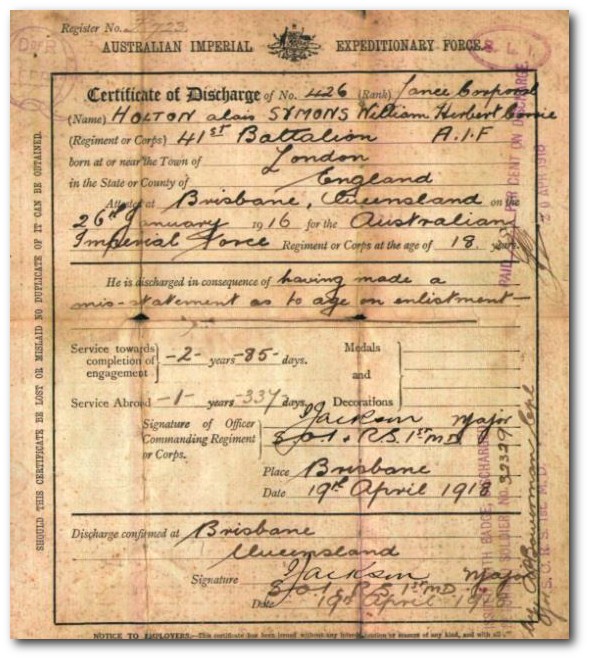 Register No.
AUSTRALIAN IMPERIAL EXPEDITIONARY FORCE.
Certificate of Discharge of No. 426 (Rank) Lance Corporal
(Name) HOLTON alais SYMONS William Herbert
(Regiment or Corps) 41ST Battalion A.I.F
born at or near the Town of London
in the State or County of England
Attested at Brisbane, Queensland on the
26th January 1916 for the Australian
Imperial Force Regiment or Corps at the age of 18 years
He is discharged in consequence of having made a
mis-statement as to age on enlistment—
Service towards completion of engagement } -2- years -85- days.
Service Abroad -1- years -337 days.
Medals
and
Decorations
Signature of Officer Commanding Regiment or Corps. Jackson Major
1st M.D
Place Brisbane
Date 19th April 1918
Discharge confirmed at Brisbane
Queensland
Signature Jackson Major
1st M.D.
Date 19th April 1918
NOTICE TO EMPLOYERS.—This certificate has been issued without any
SHOULD THIS CERTIFICATE BE LOST OR MISLAID NO DUPLICATE OF IT CAN BE OBTAINED.